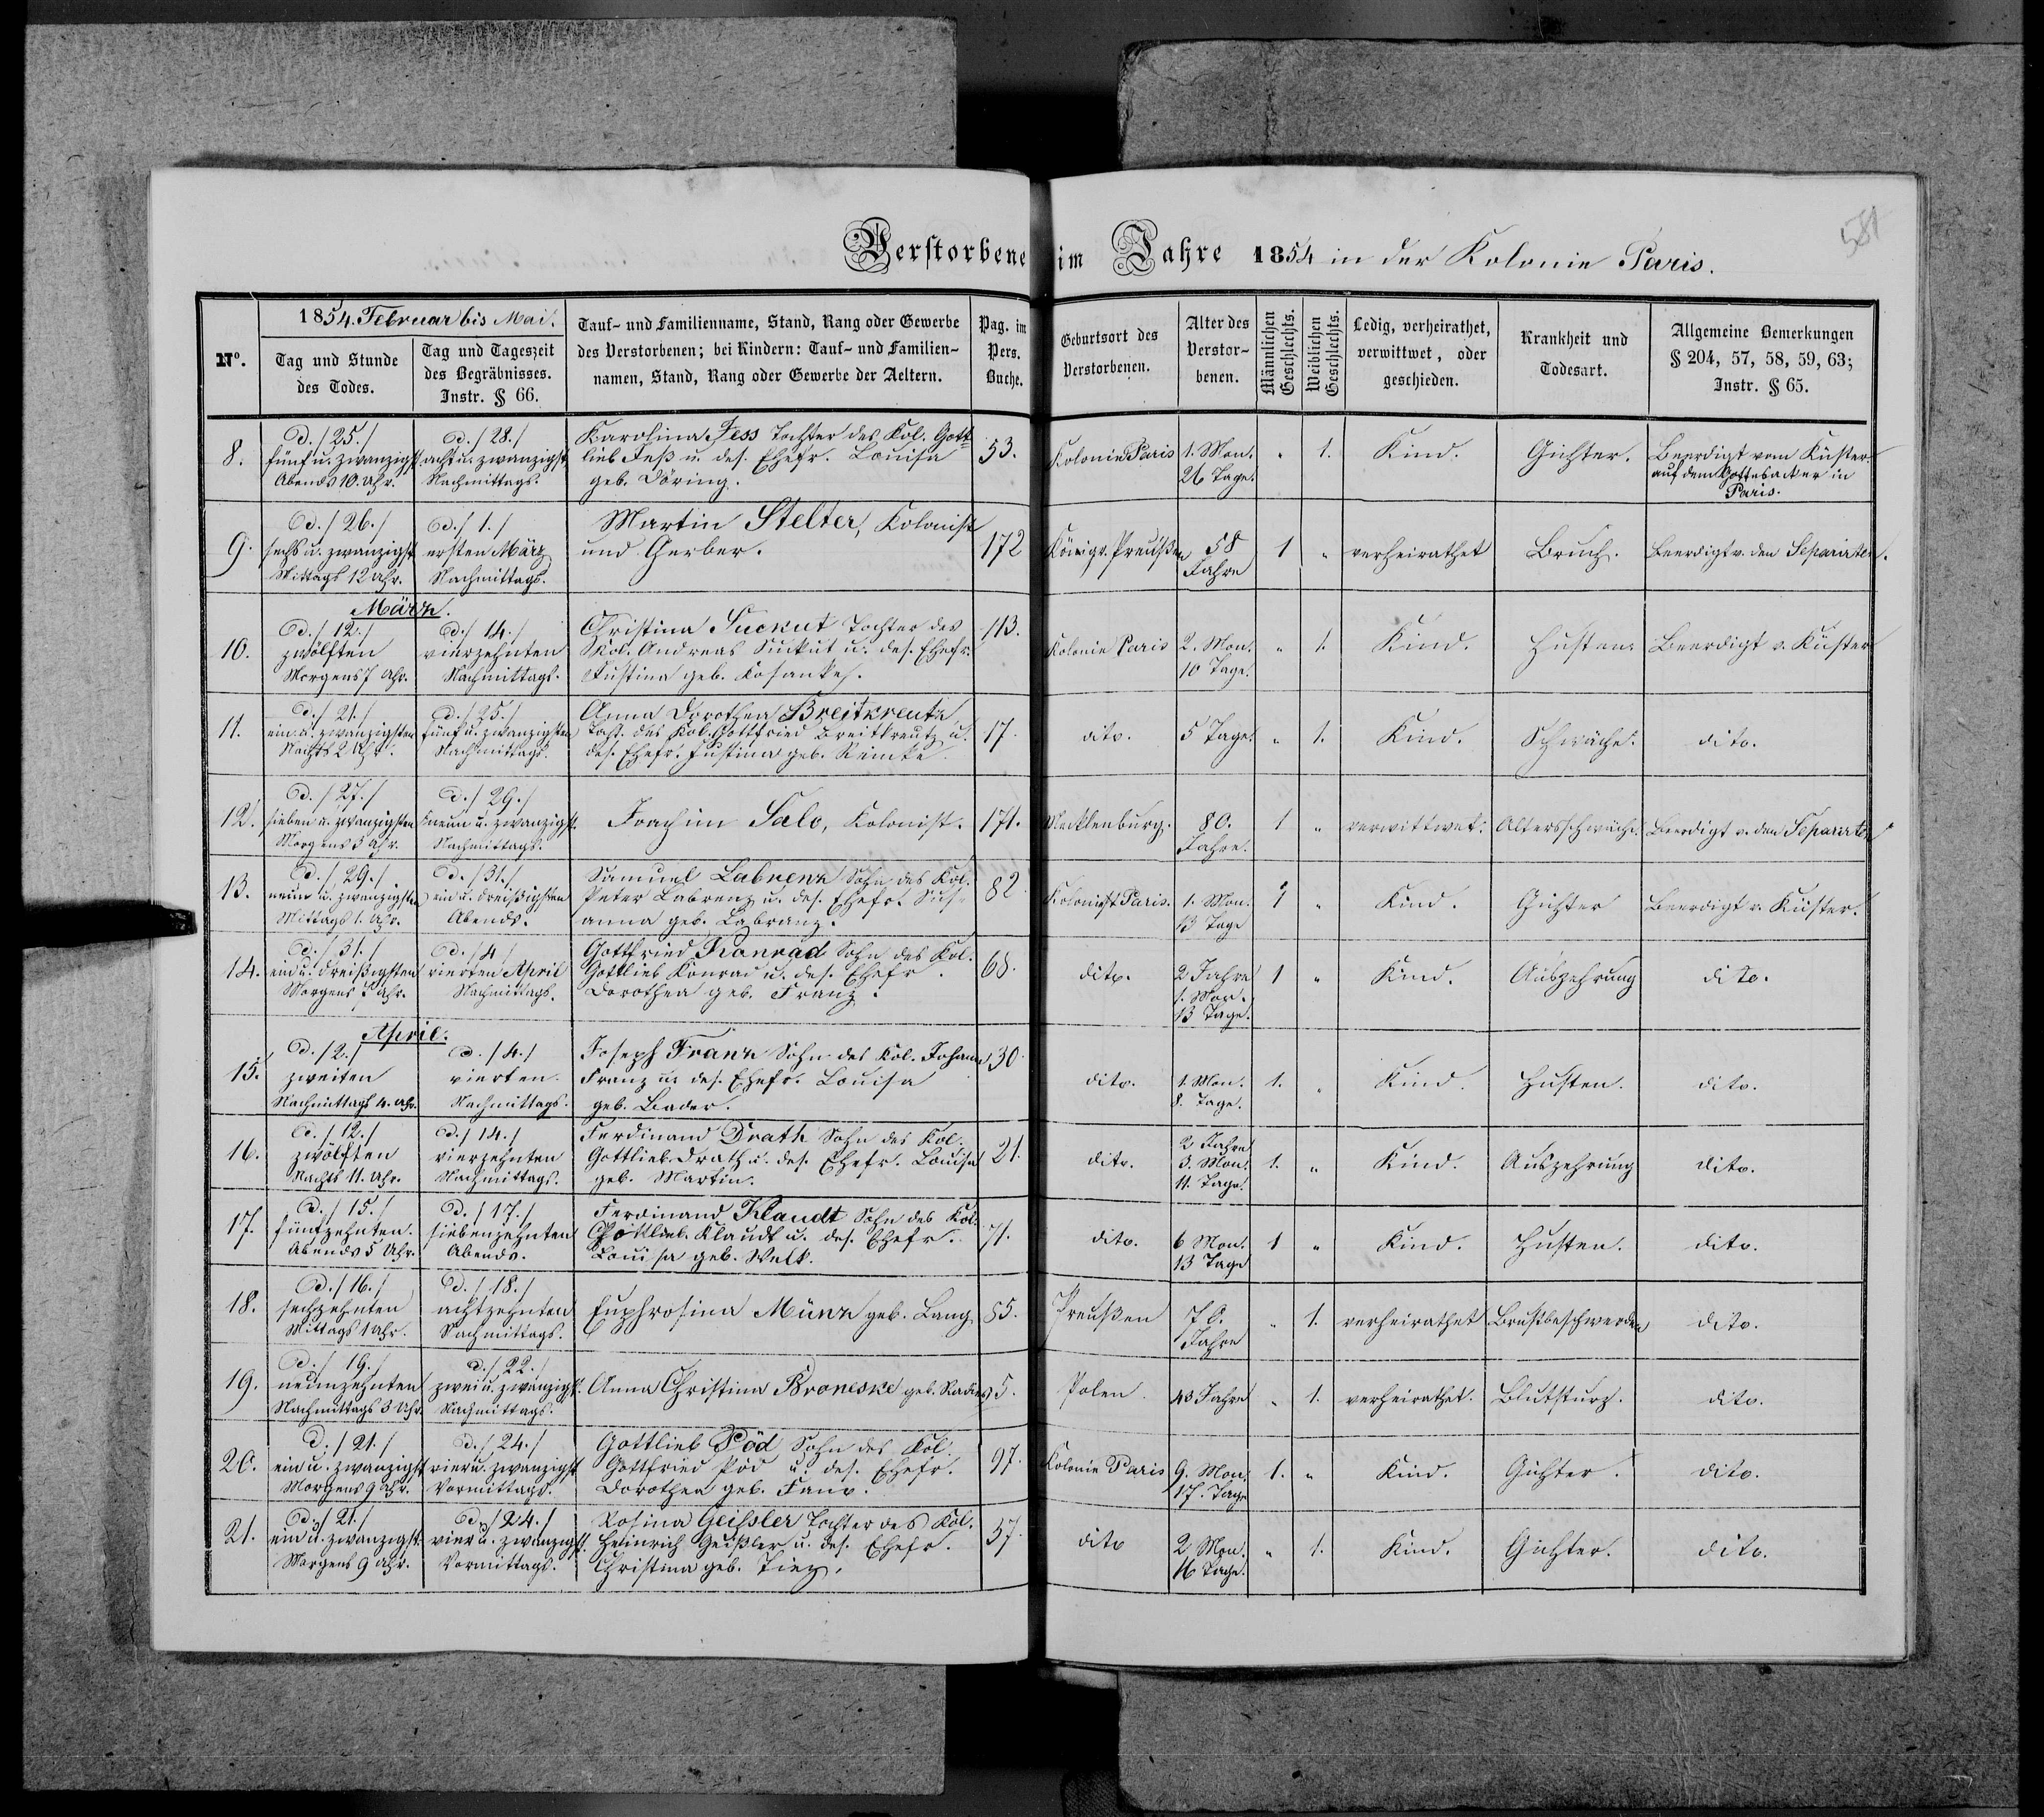 581
Verstorbene im Jahre 1854 in der Kolonie Paris.
1854. Februar bis Mai.
No.
Tag und Stunde
des Todes.
Tag und Tageszeit
des Begräbnisses.
Instr. § 66.
Tauf- und Familienname, Stand, Rang oder Gewerbe
des Verstorbenen; bei Kindern: Tauf- und Familien-
namen, Stand, Rang oder Gewerbe der Aeltern.
Pag. im
Pers.
Buche.
Geburtsort des
Verstorbenen.
Alter des
Verstor-
benen.
Männlichen
Geschlechts.
Weiblichen
Geschlechts.
Ledig, verheirathet,
verwittwet, oder
geschieden.
Krankheit und
Todesart.
Allgemeine Bemerkungen
§ 204, 57, 58, 59, 63;
Instr. § 65.
8.
d. /25./
fünf u. zwanzigst
Abends 10. Uhr.
d. /28./
acht u. zwanzigst
Nachmittags.
Karolina Jess Tochter des Kol. Gott-
lieb Jeß u. des. Ehefr. Louisa
geb. Döring.
53.
Kolonie Paris
1. Mon.
26 Tage.
" 1.
Kind.
Gichter.
Beerdigt vom Küster
auf dem Gottesacker in
Paris.
9.
d. /26./
sechs u. zwanzigst
Mittags 12 Uhr.
d. /1./
ersten März
Nachmittags.
Martin Stelter, Kolonist
und Gerber.
172
Königr. Preußen
58
Jahre
1 "
verheirathet
Bruch.
Beerdigt v. den Separirten.
März.
10.
d. /12./
zwölften
Morgens 7 Uhr.
d. /14./
vierzehnten
Nachmittags.
Christina Suckut Tochter des
Kol. Andreas Suckut u. des. Ehefr.
Justina geb. Kosanke.
113.
Kolonie Paris
2. Mon.
10 Tage.
" 1.
Kind.
Husten.
Beerdigt v. Küster
11.
d. /21./
ein u. zwanzigsten
Nachts 2 Uhr.
d. /25./
fünf u. zwanzigsten
Nachmittags.
Anna Dorothea Breitkreutz
Tocht. des Kol. Gottfried Breitkreutz u.
des. Ehefr. Justina geb. Reinke.
17.
dito.
5 Tage.
" 1.
Kind.
Schwäche.
dito.
12.
d. /27./
sieben u. zwanzigsten
Morgens 5 Uhr.
d. /29./
neun u. zwanzigst.
Nachmittags.
Joachim Salo, Kolonist.
171.
Mecklenburg.
80.
Jahre.
1 "
verwittwet.
Altersschwäche.
Beerdigt v. den Separirten
13.
d. /29./
neun u. zwanzigsten
Mittags 1. Uhr.
d. /31./
ein u. dreißigsten
Abends.
Samuel Labrenz Sohn des Kol.
Peter Labrenz u. des. Ehefr. Sus-
anna geb. Labranz.
82
Kolonist Paris.
1. Mon.
13 Tage
1 "
Kind.
Gichter
Beerdigt v. Küster.
14.
d. /31./
ein u. dreißigsten
Morgens 5 Uhr.
d. /4/
vierten April
Nachmittags.
Gottfried Konrad Sohn des Kol.
Gottlieb Konrad u. des. Ehefr.
Dorothea geb. Franz.
68.
dito.
2 Jahre
1. Mon.
13 Tage.
1 "
Kind.
Auszehrung
dito.
April.
15.
d. /2./
zweiten
Nachmittags 4. Uhr.
d. /4./
vierten.
Nachmittags.
Joseph Franz Sohn des Kol. Johann
Franz u. des. Ehefr. Louisa
geb. Bader.
30.
dito.
1. Mon.
8. Tage.
1. "
Kind.
Husten.
dito.
16.
d. /12./
zwölften
Nachts 11. Uhr.
d. /14./
vierzehnten
Nachmittags.
Ferdinand Drath Sohn des Kol.
Gottlieb Drath u. des. Ehefr. Louisa
geb. Martin.
21.
dito.
2 Jahre
3. Mon.
11. Tage.
1. "
Kind.
Auszehrung
dito.
17.
d. /15./
fünfzehnten.
Abends 5 Uhr.
d. /17./
siebenzehnten
Abends.
Ferdinand Klaudt Sohn des Kol.
Gottlieb Klaudt u. des. Ehefr.
Louisa geb. Welk.
71.
dito.
6 Mon.
13 Tage
1 "
Kind.
Husten.
dito.
18.
d. /16./
sechzehnten
Mittags 1 Uhr.
d. /18./
achtzehnten
Nachmittags.
Euphrosina Münz geb. Lang.
85.
Preußen
70.
Jahre
" 1.
verheirathet
Brustbeschwerden
dito.
19.
d. /19./
neunzehnten
Nachmittags 3 Uhr.
d. /22./
zwei u. zwanzigst.
Nachmittags.
Anna Christina Broneske geb.
5.
Polen.
43 Jahre
" 1.
verheirathet.
Blutsturz.
dito.
20.
d. /21./
ein u. zwanzigst
Morgens 9 Uhr.
d. /24./
vier u. zwanzigst
Vormittags.
Gottlieb Pöd Sohn des Kol.
Gottfried Pöd u. des. Ehefr.
Dorothea geb.
97.
Kolonie Paris
9. Mon.
17. Tage
1. "
Kind.
Gichter.
dito.
21.
d. /21./
ein u. zwanzigst.
Morgens 9 Uhr.
d. /24./
vier u. zwanzigst.
Vormittags.
Rosina Geissler Tochter des Kol.
Heinrich Geißler u. des. Ehefr.
Christina geb. Tiez.
57.
dito
2 Mon.
16 Tage.
" 1.
Kind.
Gichter.
dito.